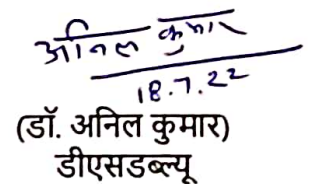 अनिल कुमार
18.7.22
(डॉ. अनिल कुमार)
डीएसडब्ल्यू